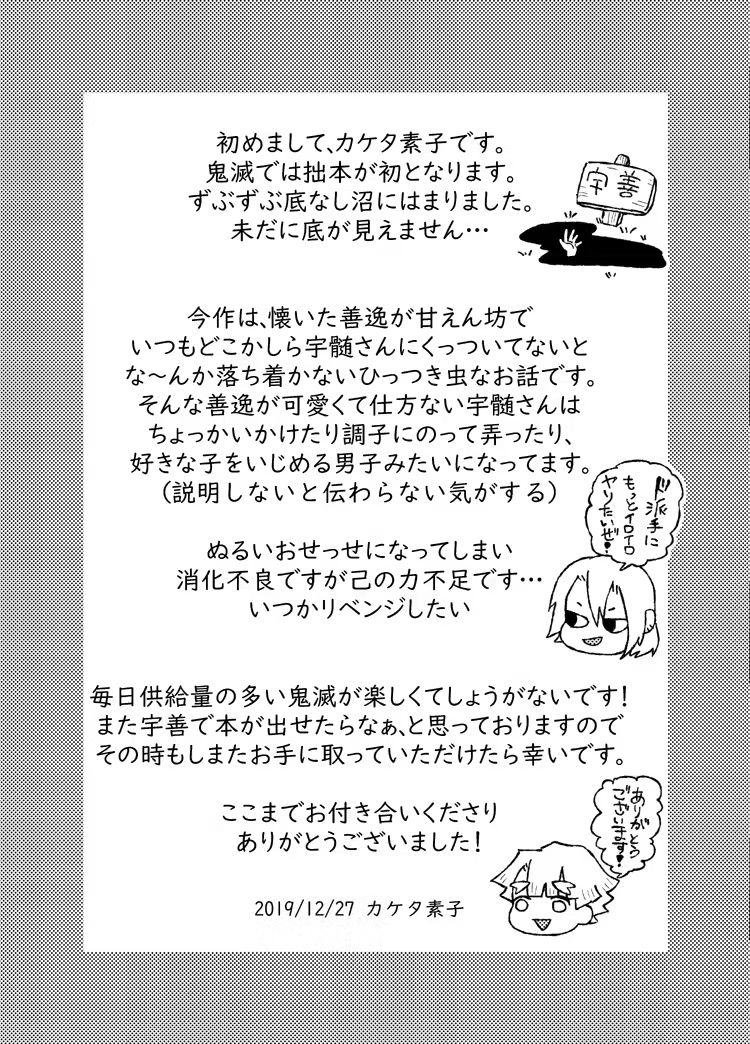 初めまして、カケタ素子です。
鬼滅では拙本が初となります。
ずぶずぶ底なし沼にはまりました。
未だに底が見えません…
宇善
今作は、懐いた善逸が甘えん坊で
いつもどこかしら宇髄さんにくっついてないと
な～んか落ち着かないひっつき虫なお話です。
そんな善逸が可愛くて仕方ない宇髄さんは
ちょっかいかけたり調子にのって弄ったり、
好きな子をいじめる男子みたいになってます。
(説明しないと伝わらない気がする)
ド派手に
もっとイロイロ
ヤリたいぜ!
ぬるいおせっせになってしまい
消化不良ですが己の力不足です…
いつかリベンジしたい
毎日供給量の多い鬼滅が楽しくてしょうがないです!
また宇善で本が出せたらなぁ、と思っておりますので
その時もしまたお手に取っていただけたら幸いです。
ありがとう
ございます!
ここまでお付き合いくださり
ありがとうございました!
2019/12/27 カケタ素子